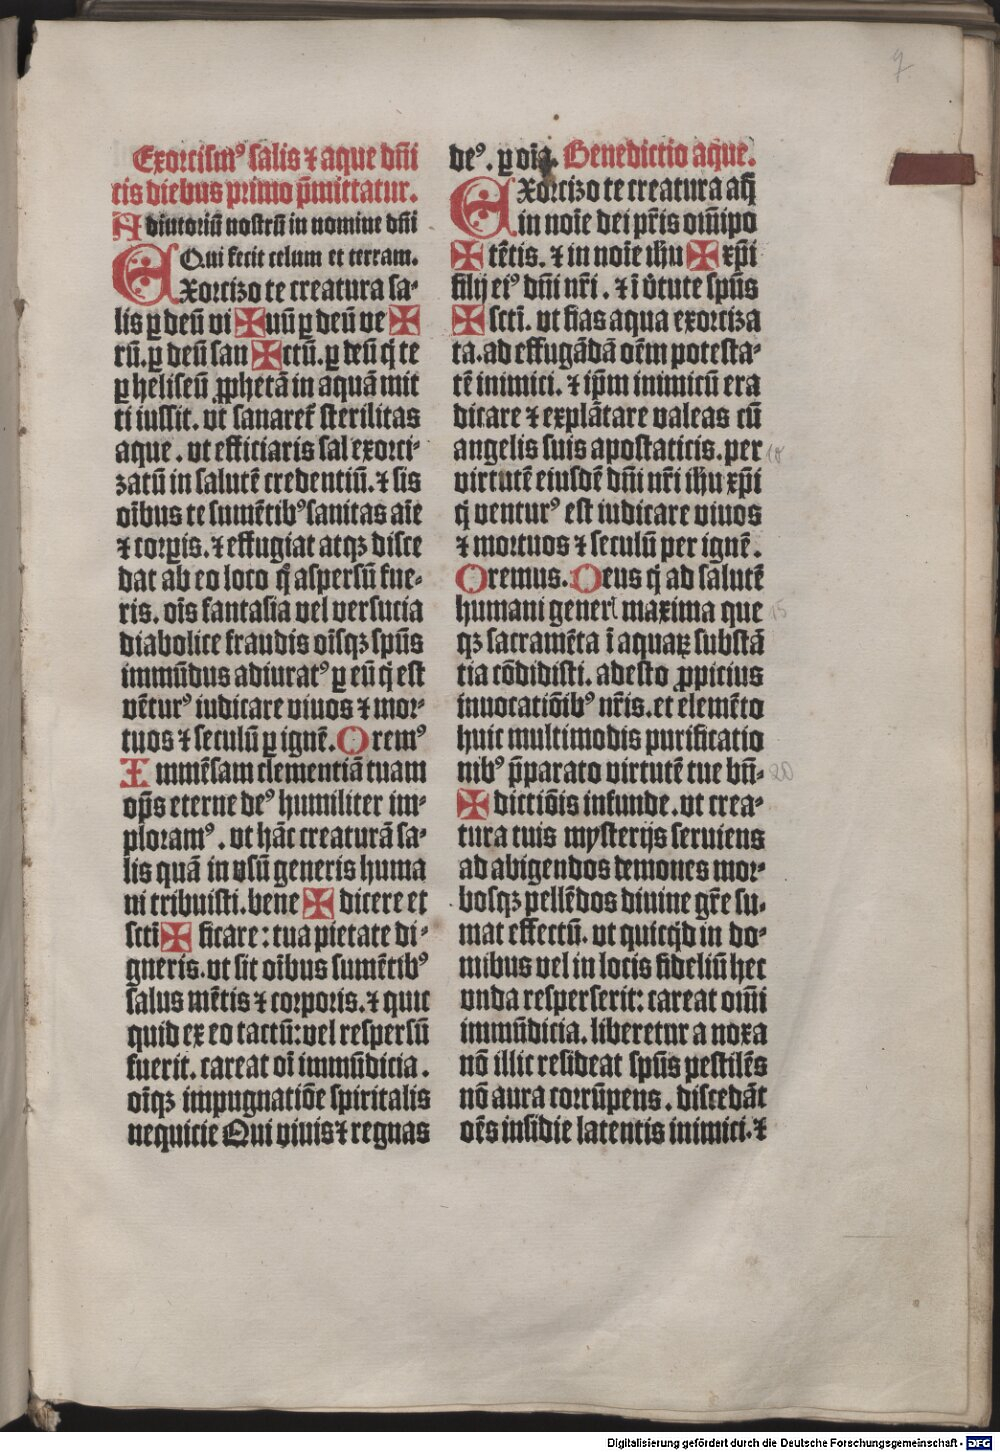 7
Exorcismꝰ salis ⁊ aque dñi
cis diebus primo p̃mittatur.
Adiutoriũ nostrũ in nomine dñi
Qui fecit celum et terram.
EXorcizo te creatura sa⸗
lis ꝑ deũ vi ✠ uũ ꝑ deũ ve ✠
rũ. ꝑ deũ san ✠ ctũ. ꝑ deũ q̇ te
ꝑ heliseũ ꝓphetã in aquã mit
ti iussit. vt sanaret᷑ sterilitas
aque. vt efficiaris sal exorci⸗
zatũ in salutẽ credentiũ. ⁊ sis
oĩbus te sumẽtibꝰ sanitas aĩe
⁊ corꝑis. ⁊ effugiat atqꝫ disce
dat ab eo loco q̃ aspersũ fue⸗
ris. oĩs fantasia vel versucia
diabolice fraudis oĩsqꝫ spũs
immũdus adiuratꝰ ꝑ eũ q̇ est
vẽturꝰ iudicare viuos ⁊ mor⸗
tuos ⁊ seculũ ꝑ ignẽ. Oremꝰ
Immẽsam clementiã tuam
opṡ eterne deꝰ humiliter im⸗
ploramꝰ. vt hãc creaturã sa⸗
lis quã in vsũ generis huma
ni tribuisti. bene ✠ dicere et
scti ✠ ficare: tua pietate di⸗
gneris. vt sit oĩbus sumẽtibꝰ
salus mẽtis ⁊ corporis. ⁊ quic
quid ex eo tactũ: vel respersũ
fuerit. careat oĩ immũdicia.
oĩqꝫ impugnatiõe spiritalis
nequicie Qui viuis ⁊ regnas
deꝰ. ꝑ oĩa. Benedictio aque.
EXorcizo te creatura aq̃
in noĩe dei pr̃is omĩpo
✠ tẽtis. ⁊ in noĩe ihu ✠ xp̃i
filij eiꝰ dñi nr̃i. ⁊ ĩ v̇tute spũs
✠ scti. vt fias aqua exorciza
ta. ad effugãdã oẽm potesta⸗
tẽ inimici. ⁊ ip̃m inimicũ era
dicare ⁊ explãtare valeas cũ
angelis suis apostaticis. per
10
virtutẽ eiusdẽ dñi nr̃i ihu xp̃i
q̇ venturꝰ est iudicare viuos
⁊ mortuos ⁊ seculũ per ignẽ.
Oremus. Deus q̇ ad salutẽ
humani generꝭ maxima que
15
qꝫ sacramẽta ĩ aquaꝝ substã
tia cõdidisti. adesto ꝓpicius
inuocatiõibꝰ nr̃is. et elemẽto
huic multimodis purificatio
nibꝰ p̃parato virtutẽ tue bñ⸗
20
✠ dictiõis infunde. vt crea⸗
tura tuis mysterijs seruiens
ad abigendos demones mor⸗
bosqꝫ pellẽdos diuine gr̃e su⸗
mat effectũ. vt quicq̇d in do⸗
mibus vel in locis fideliũ hec
vnda resperserit: careat omĩ
immũdicia. liberetur a noxa
nõ illic resideat spũs pestilẽs
nõ aura corrũpens. discedãt
oẽs insidie latentis inimici. ⁊
Digitalisierung gefördert durch die Deutsche Forschungsgemeinschaft - DFG